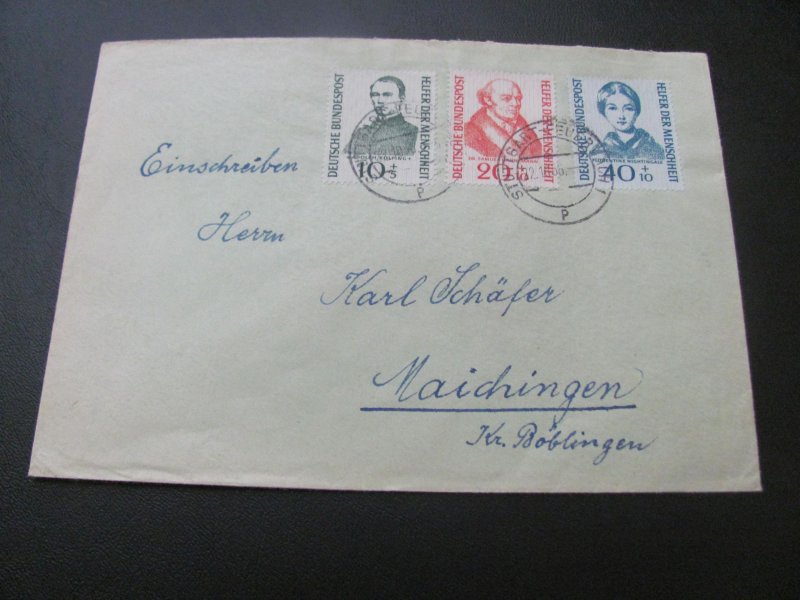 DEUTSCHE BUNDESPOST
HELFER DER MENSCHHEIT
10+5
DEUTSCHE BUNDESPOST
HELFER DER MENSCHHEIT
20+10
DEUTSCHE BUNDESPOST
HELFER DER MENSCHHEIT
FLORENTINE NIGHTINGALE
40+10
P
P
Einschreiben
Herrn
Karl Schäfer
Maichingen
Kr. Böblingen